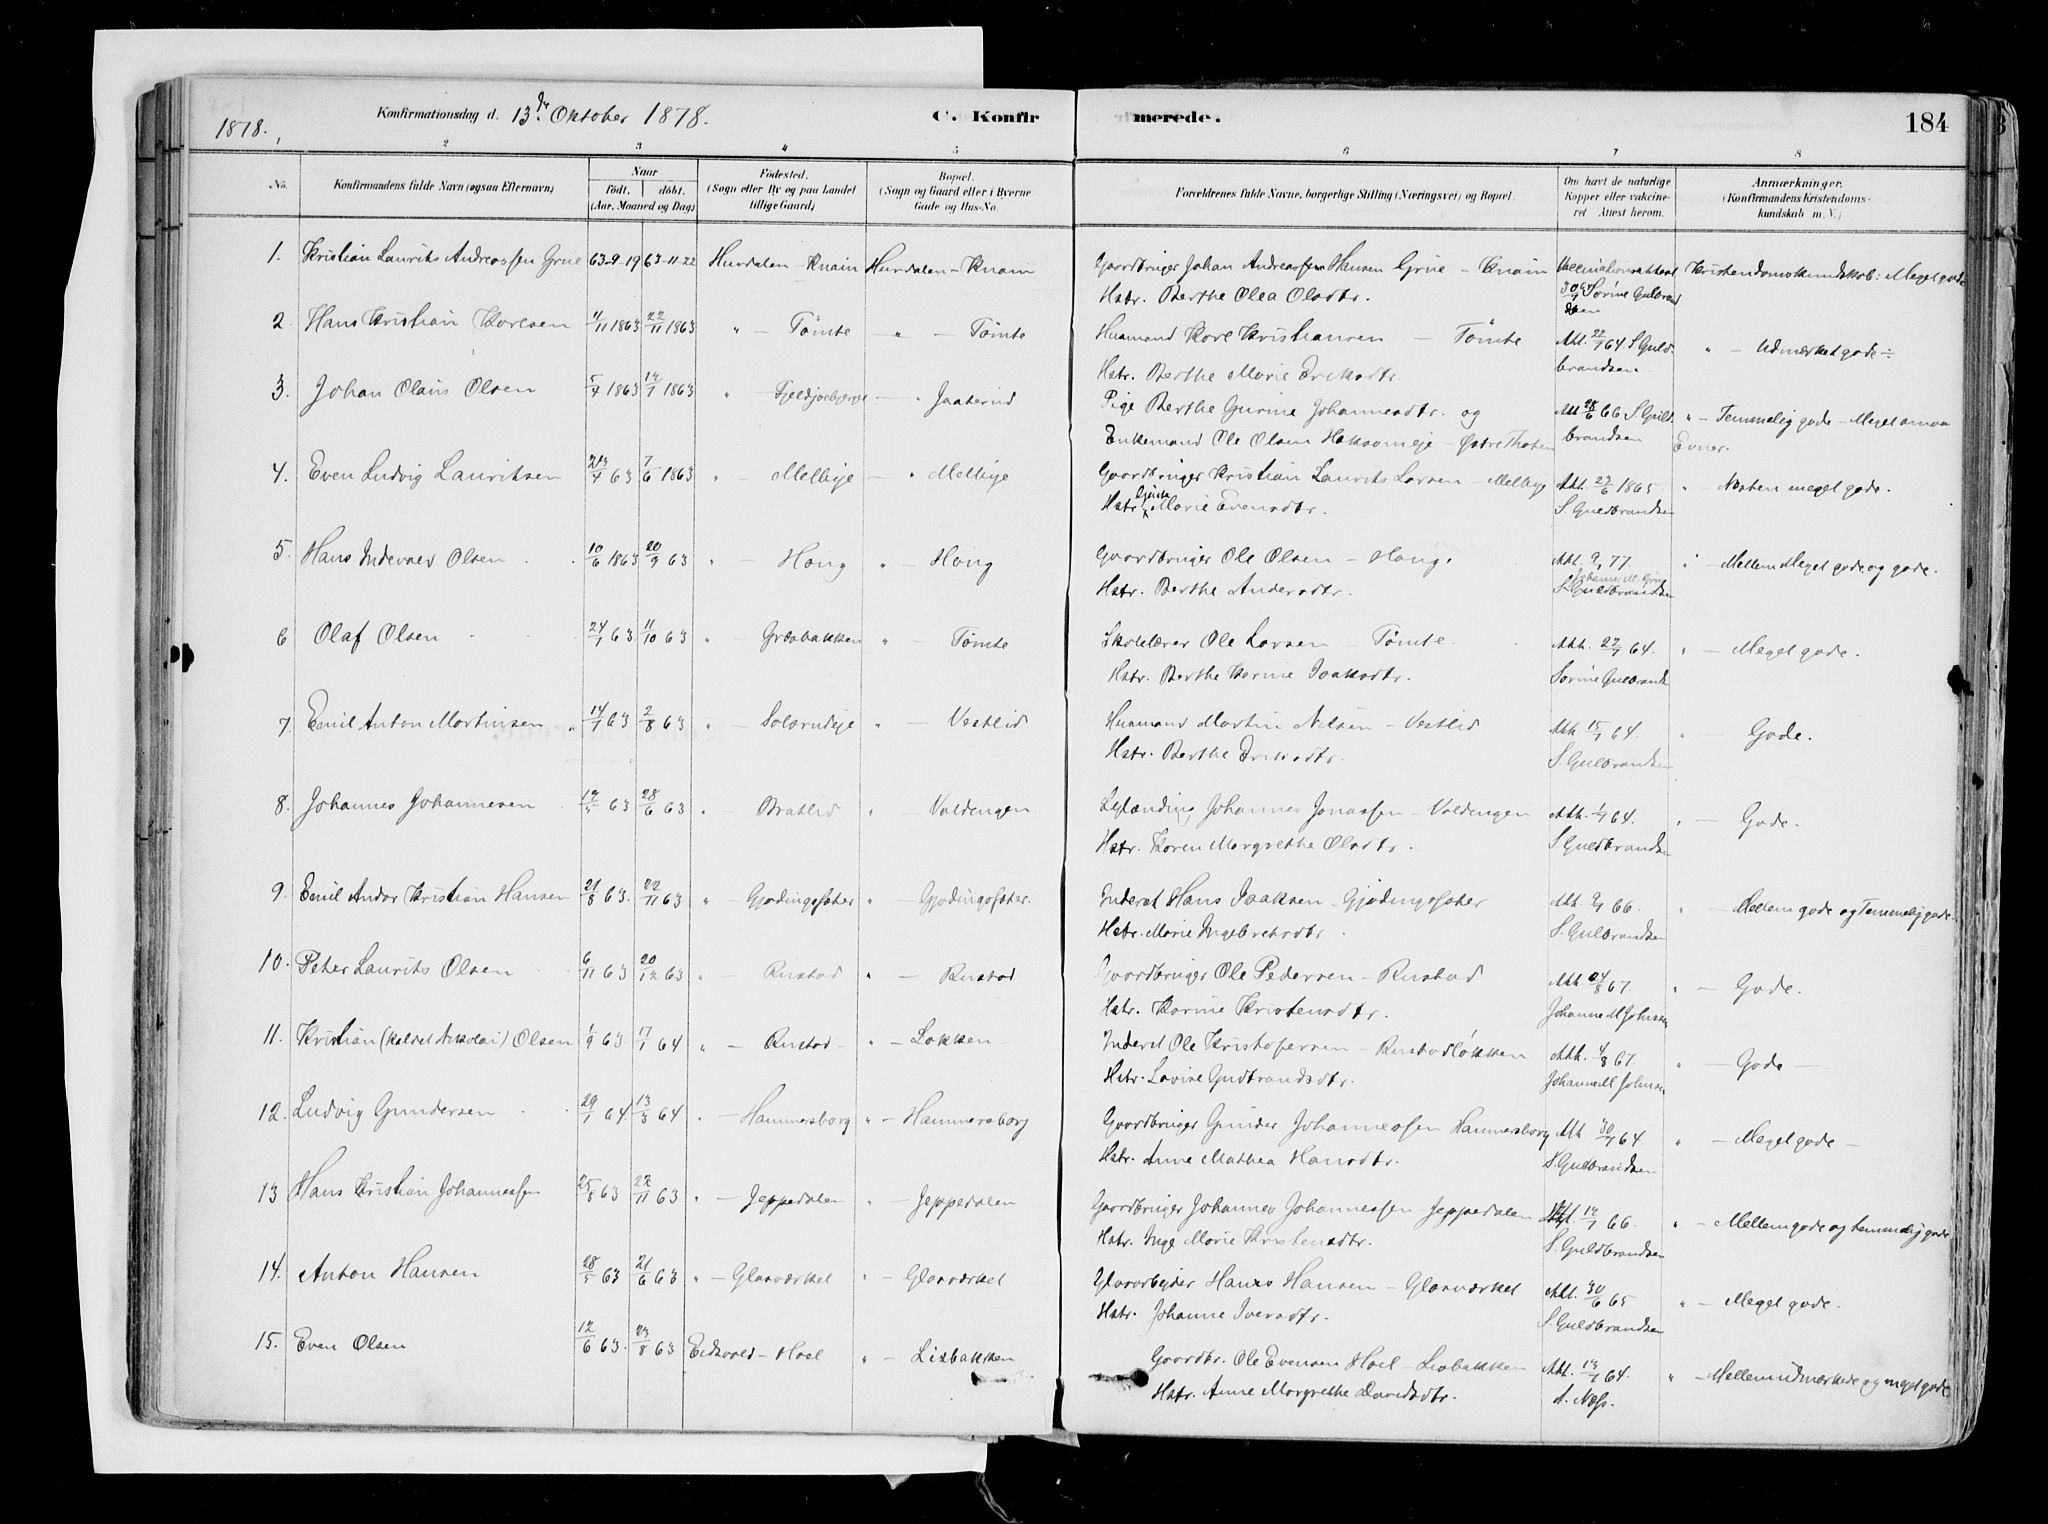 1878.
Konfirmationsdag d. 13de Oktober 1878.
C. Konfir
merede.
184
2 3 4 5 6 7 8
No.
Konfirmandens fulde Navn (ogsaa Efternavn)
Naar
født. døbt.
(Aar, Maaned og Dag)
Fødested.
(Sogn eller By og paa Landet
tillige Gaard)
Bopæl.
(Sogn og Gaard eller i Byerne
Gade og Hus-No.
Forældrenes fulde Navne, borgerlige Stilling (Næringsvei) og Bopæl.
Om havt de naturlige
Kopper eller vakcine-
ret Attest herom.
Anmærkninger.
(Konfirmandens Kristendoms-
kundskab m. V.)
1. Kristian Laurits Andreassen Grue 63-9-19 63-11-22 Hurdalen - Knain Hurdalen - Knain Gaardbruger Johan Andreassen Hansen Grue - Knain Vaccinationsattest Kristendomskundskab: Meget gode
Hstr. Berthe Olea Olsdtr. Sørine Gulbrand
sen
2. Hans Kristian Karlsen 4/11 1863 22/11 1863 " - Tømte " - Tømte Husmand Karl Kristiansen - Tømte Att. 22/7 64 S Guld- " - Udmærket gode ÷
Hstr. Berthe Marie Eriksdtr. brandsen
3. Johan Olaus Olsen 5/4 1863 12/7 1863 " - " Jaaterud Pige Berthe Gurine Johannesdtr. og Att 28/6 66 S Guld- " - Temmelig gode - Meget smaa
Enkemand Ole Olsen - Østre Thoten brandsen Evner.
4. Even Ludvig Lauritsen 7/6 1863 " - Melbye - " Melbye Gaardbruger Kristian Laurits Larsen - Melbye Att. 27/6 1865 " - Næsten meget gode.
Hstr. Marie Evensdtr. S. Guldbrandsen
5. Hans Indevald Olsen 10/6 1863 20/9 63 " - Høng " - Høng Gaardbruger Ole Olsen - Høng. Att. 77 " - Mellem Meget gode og gode.
Hstr. Berthe Andersdtr. S Guldbrandsen
6 Olaf Olsen 24/7 63 11/10 63 " - Græsbakken " - Tømte Skolelærer Ole Larsen - Tømte. Att. 22/7 64. " - Meget gode.
Hstr. Berthe Karine Isaksdtr. Sørine Gulbrands
7. Emil Anton Martinsen 14/7 63 2/8 63 " - " - Vestlid Husmand Martin Nilsen - Vestlid Att. 15/7 64. " - Gode.
Hstr. Berthe Eriksdtr. S. Gulbrandsen
8. Johannes Johannesen 63 28/6 63 " - Bratlid " - Valdengen Leilænding Johannes Jonassen - Valdengen Att. 1/7 64. " - Gode.
Hstr. Karen Margrethe Olsdtr. S Guldbrandsen
9. Emil Andor Kristian Hansen 21/8 63. 22/11 63 " - Gjødingsæter " - Gjødingsæter. Inderst Hans Isaksen - Gjødingsæter Att. 66. " - Mellem gode og Temmelig gode.
Hstr. Marie Ingebretsdtr. S. Gulbrandsen
10. Peter Laurits Olsen 6/11 63 20/12 63 " - Rustad " - Rustad Gaardbruger Ole Pedersen - Rustad Att. 24/8 67. " - Gode.
Hstr. Karine Kristensdtr. Johanne M Johnsen
11. Kristian (kaldet Nikolai) Olsen 1/9 63 17/1 64 " - Rustad - " - Løkken - Inderst Ole Kristofersen - Rustadløkken Att. 4/8 67. " - Gode -
Hstr. Lovise Gudbrandsdtr. Johanne M Johnsen
12. Ludvig Gundersen 29/1 64 13/3 64 " - Hammersborg " - Hammersborg Gaardbruger Gunder Johannessen Hammersborg Att. 30/7 64 " - Meget gode -
Hstr. Anne Mathea Hansdtr. S. Gulbrandsen
13 Hans Kristian Johannessen 25/8 63 22/11 63 " - Jeppedalen " - Jeppedalen Gaardbruger Johannes Johannessen Jeppedalen 66. " - Mellem gode og temmelig gode
Hstr. Inge Marie Kristensdtr. S. Guldbrandsen
14. Anton Hansen 28/5 63 21/6 63 " - Glasværket " - Glasværket Glasarbeider Hans Hansen - Glasværket Att. 30/6 65 " - Meget gode.
Hstr. Johanne Iversdtr. S. Guldbrandsen
15. Even Olsen 12/6 63. 23/8 63 Eidsvold - Hoel " - Lisbakken Gaardbr. Ole Evensen Hoel - Lisbakken Att. 64. " - Mellem udmærkede og meget gode
Hstr. Anne Margrethe Davidsdtr. A. Næss.